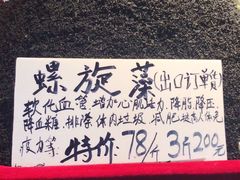 螺旋藻(出口订单货)
软化血管,增加心肌活力,降脂,降压,
降血糖,排除体内垃圾,减肥,提高人体免
疫力等。特价:78/斤 3斤200元